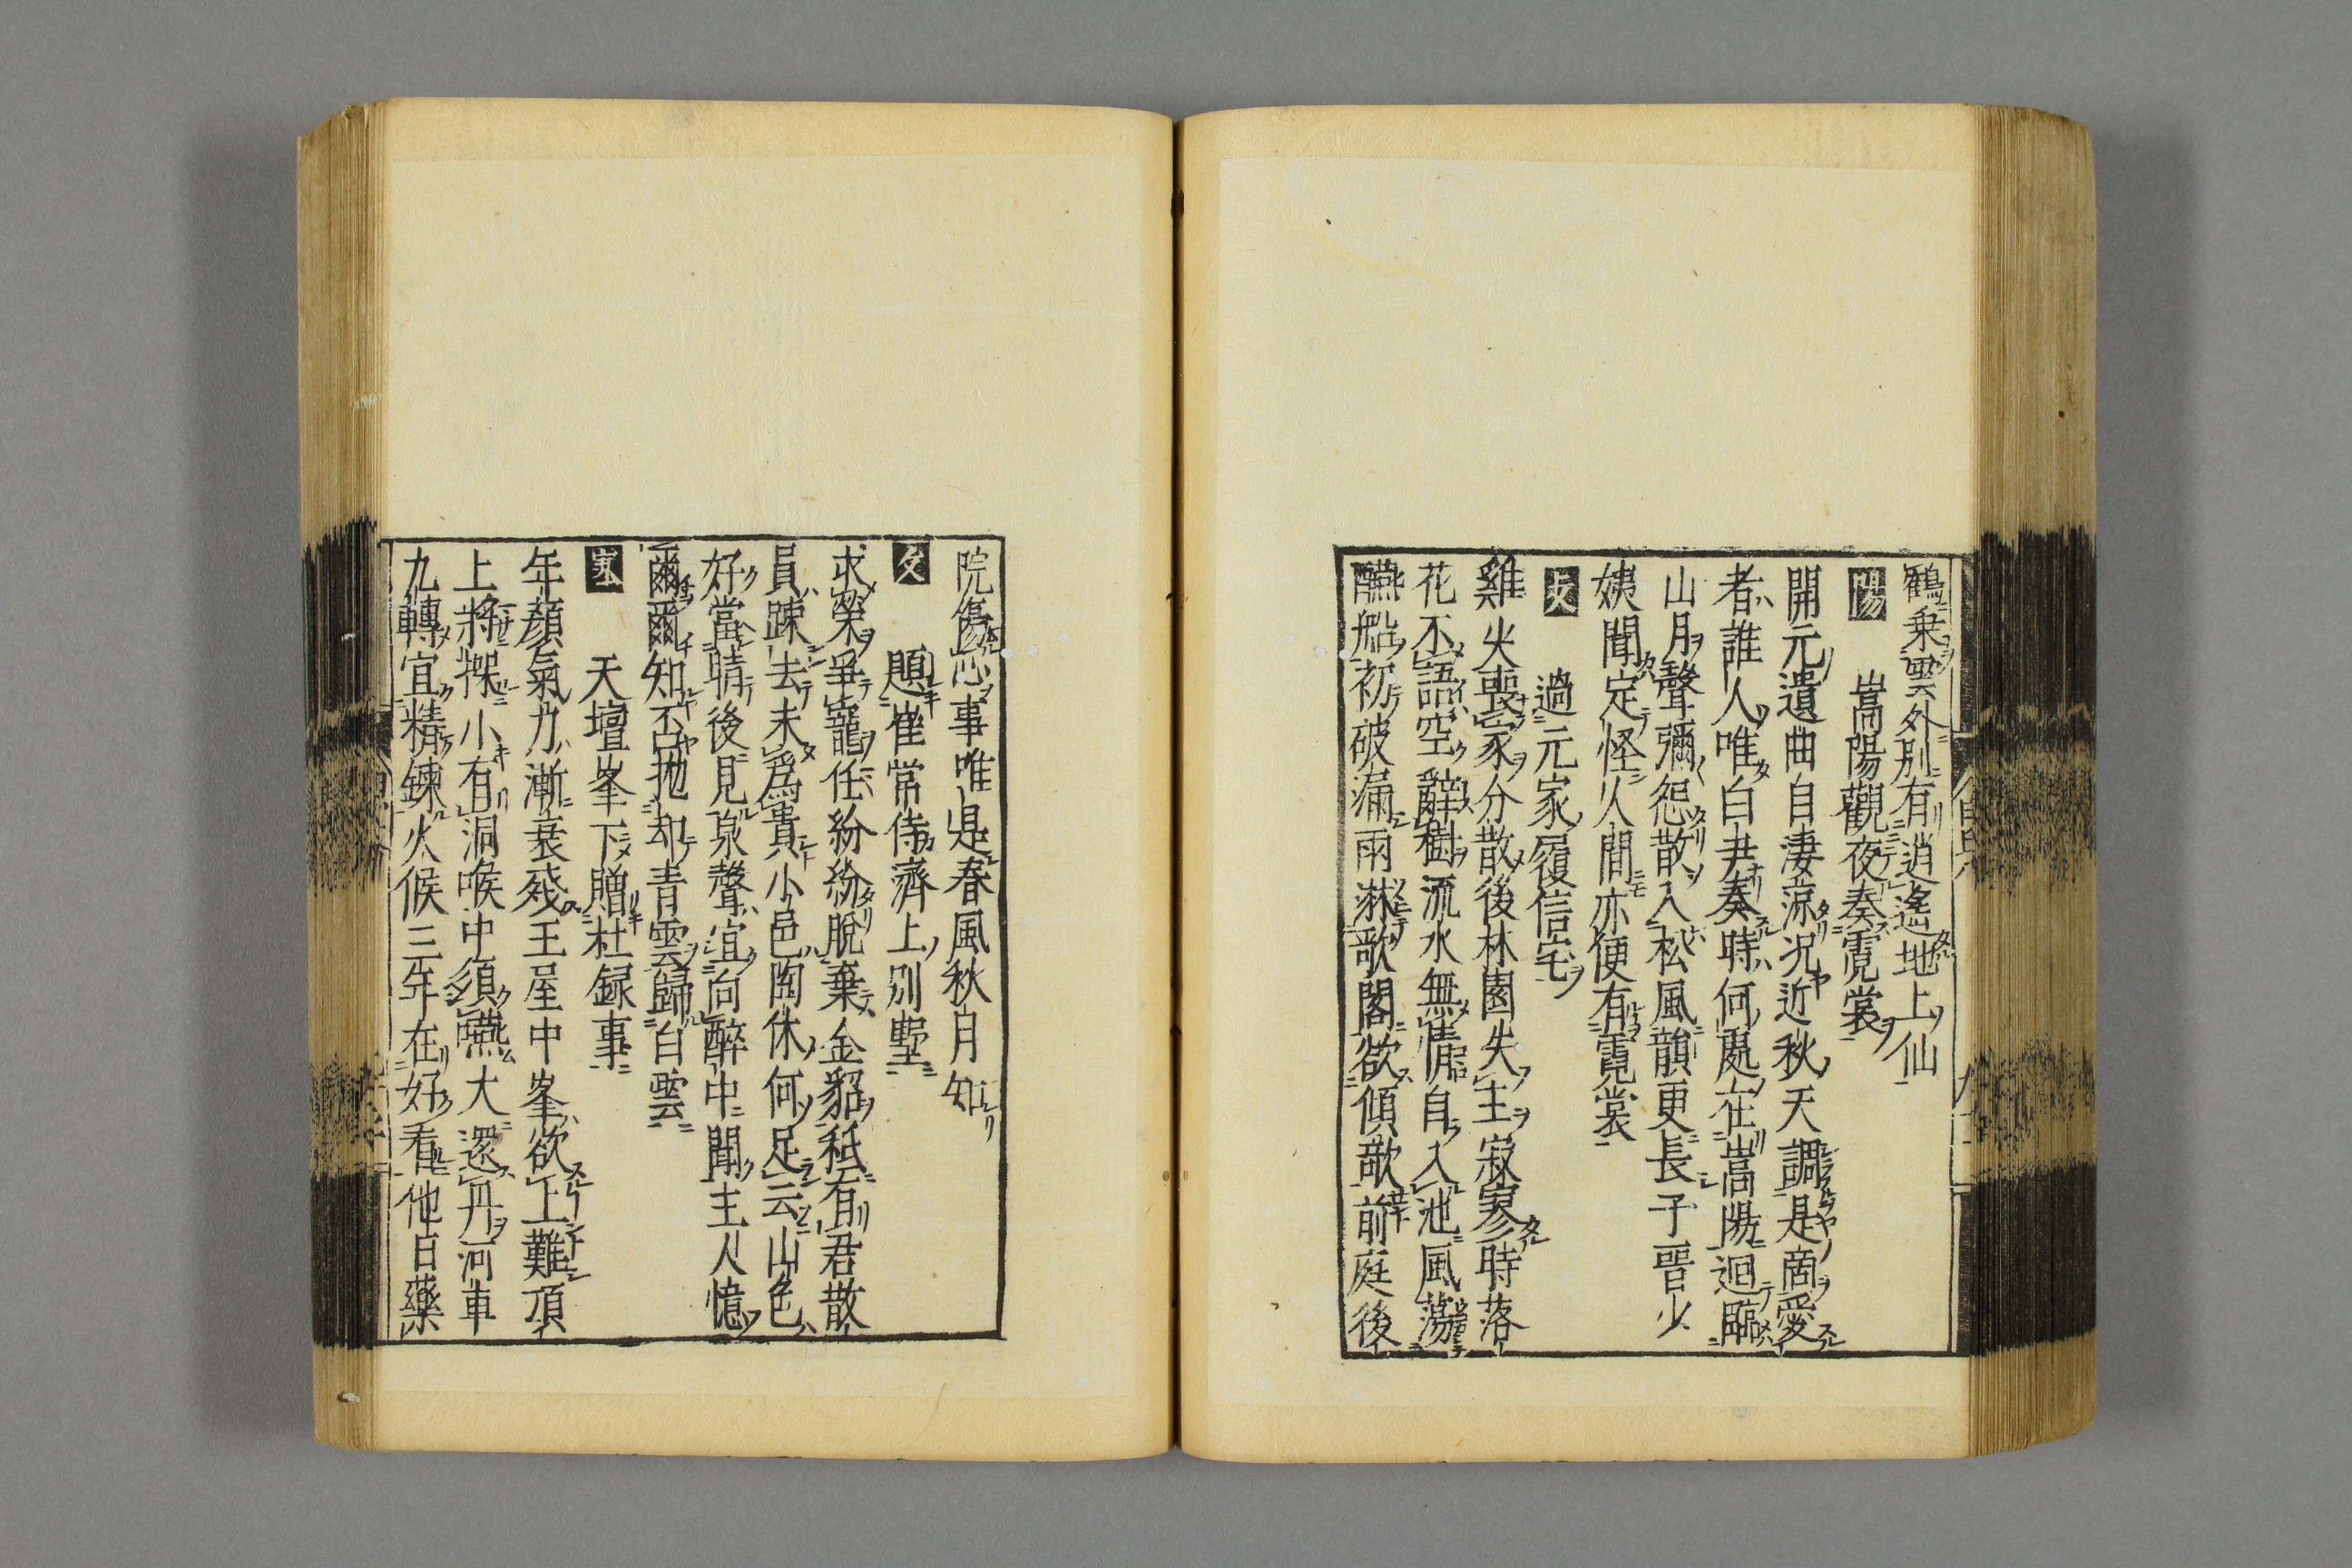 鶴乗雲外別有逍遙地上仙
陽　嵩陽觀夜奏霓裳
開元遺曲自凄凉况近秋天調是商愛
者誰人唯白尹奏時何處在嵩陽迴臨
山月聲彌怨散入松風韻更長子晋少
姨聞定怪人間亦便有霓裳
支　過元家履信宅
雞犬喪家分散後林園失主寂寥時落
花不語空辭樹流水無情自入池風蕩
醼船初破漏雨淋歌閣欲傾欹前庭後
院傷心事唯是春風秋月知
文　題崔常侍濟上別墅
求榮爭寵任紛紛脫棄金貂秪有君散
員踈去未爲貴小邑陶休何足云山色
好當晴後見泉聲宜向醉中聞主人憶
爾爾知否抛却青雲歸白雲
寒　天壇峯下贈杜録事
年顏氣力漸衰殘王屋中峯欲上難頂
上將探小有洞喉中須嚥大還丹河車
九轉宜精鍊火候三年在好看他日藥